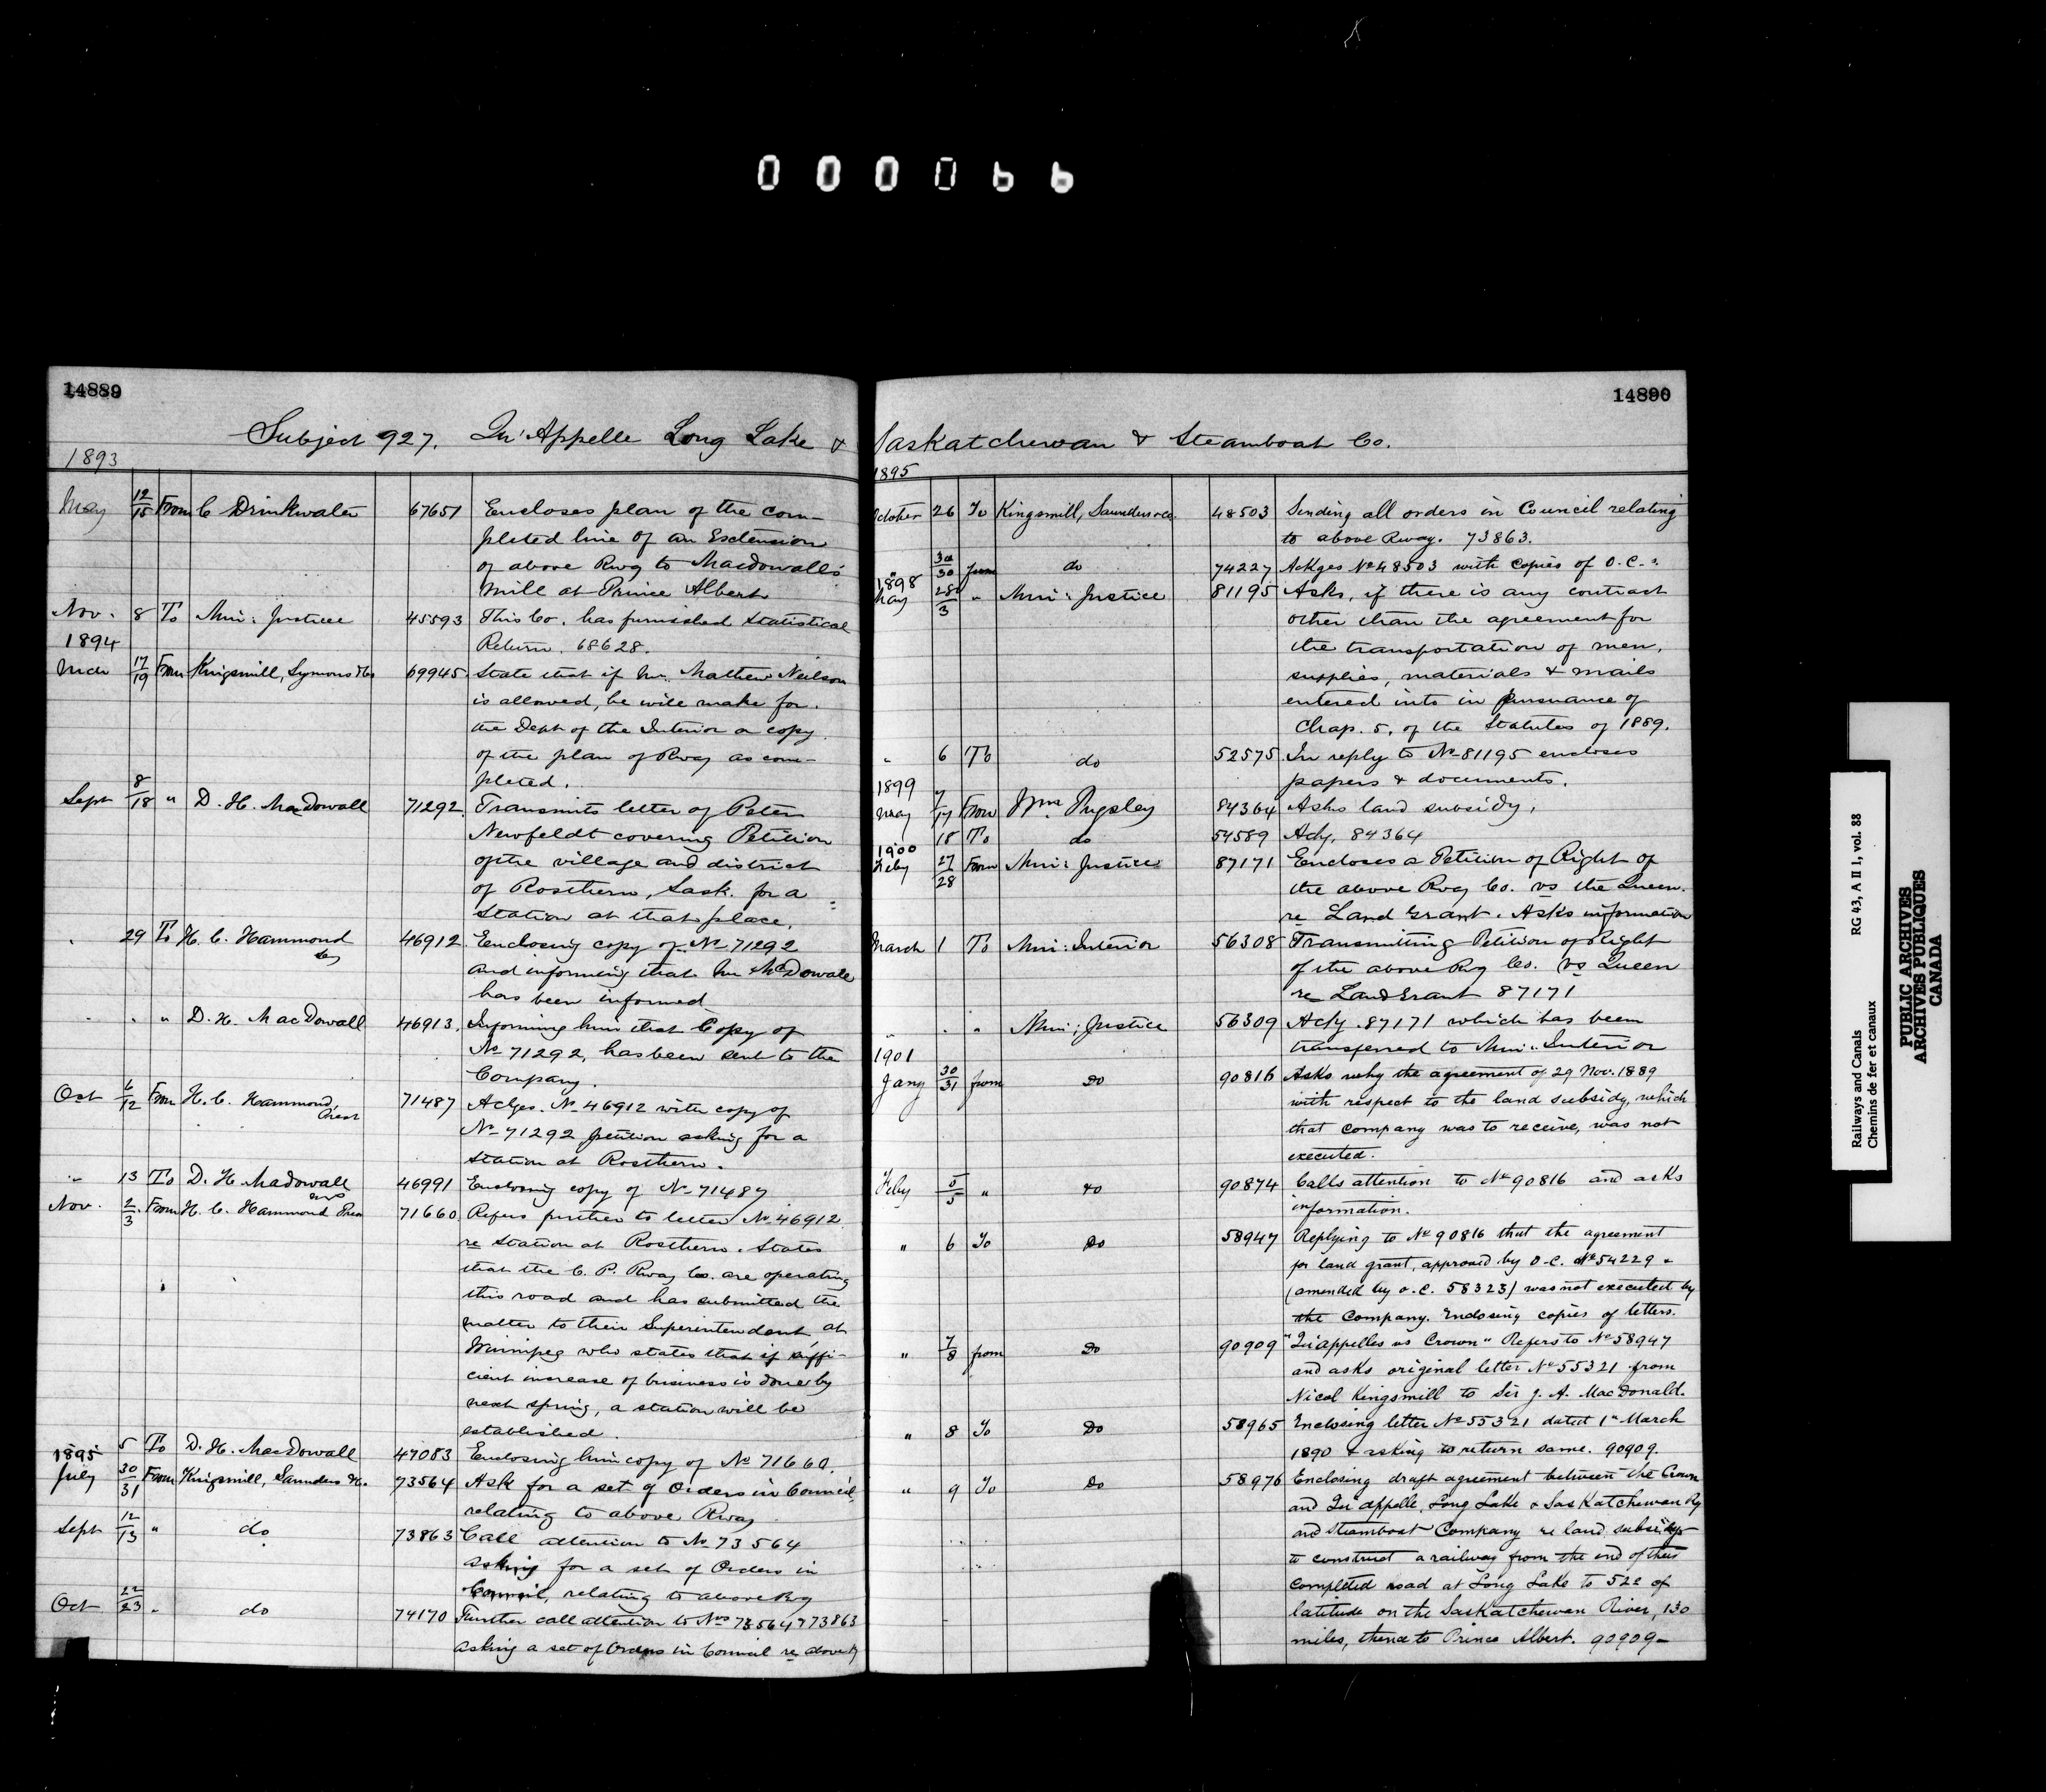 000066
14889
Subject 927. Qu'Appelle Long Lake &
1893
May 12/15 From C Drinkwater 67651 Encloses plan of the com-
pleted line of an Extension
of above Rwy to Macdowall's
mill at Prince Albert
Nov. 8 To Min: Justice 45593 This Co. has furnished Statistical
Return. 68628.
1894
Mch 17/19 From Kingsmill, Symons & Co 69945 State that if Mr. Mathew Neilson
is allowed, he will make for
the Dept of the Interior a copy
of the plan of Rway as com-
pleted.
Sept 8/18 " D. H. MacDowall 71292. Transmits letter of Peter
Newfeldt covering Petition
of the village and district
of Rosthern, Sask. for a
Station at that place.
" 29 To H. C. Hammond 46912 Enclosing copy of No 71292
and informing that Mr McDowall
has been informed
" " " D. H. MacDowall 46913. Informing him that Copy of
No 71292, has been sent to the
Company.
Oct 6/12 From H. C. Hammond, Pres 71487 Ackges. No 46912 with copy of
No 71292 petition asking for a
Station at Rosthern.
" 13 To D. H. Madowall 46991 Enclosing copy of No 71487
Nov. 2/3 From H. C. Hammond Pres 71660 Refers further to letter No 46912
re Station at Rosthern. States
that the C. P. Rway Co. are operating
this road and has submitted the
matter to their Superintendent at
Winnipeg who states that if suffi-
cient increase of business is done by
next spring, a station will be
established.
5 To D. H. MacDowall 47083 Enclosing him copy of No 71660.
1895
July 30/31 From Kingsmill, Saunders & Co. 73564 Ask for a set of Orders in Council
relating to above Rway
Sept 12/13 " do 73863 Call attention to No 73564
asking for a set of Orders in
Council, relating to above Ry
Oct 22/23 " do 74170 Further call attention to Nos 73564 & 73863
asking a set of Orders in Council re above Ry
14890
Saskatchewan & Steamboat Co.
1895
October 26 To Kingsmill, Saunders & Co. 48503 Sending all orders in Council relating
to above Rway. 73863.
" 30/30 from do 74227 Ackges No 48503 with copies of O.C.s.
1898
May 28/3 " Min: Justice 81195 Asks, if there is any contract
other than the agreement for
the transportation of men,
supplies, materials & mails
entered into in pursuance of
Chap. 5, of the Statutes of 1889.
" 6 To do 52575. In reply to No 81195 encloses
papers & documents.
1899
May 7/17 From Wm. Pugsley 84364 Asks land subsidy.
18 To do 54589 Ackg. 84364
1900
Feby 27/28 From Min: Justice 87171 Encloses a Petition of Right of
the above Rwy Co. vs the Queen.
re Land Grant. Asks information
March 1 To Min: Interior 56308 Transmitting Petition of Right
of the above Ry Co. vs Queen
re Land Grant 87171
" " " Min: Justice 56309 Ackg. 87171 which has been
transferred to Min: Interior
1901
Jany 30/31 from Do 90816 Asks why the agreement of 29 Nov. 1889
with respect to the land subsidy, which
that company was to receive, was not
executed.
Feby 5/5 " do 90874 Calls attention to No 90816 and asks
information.
" 6 To Do 58947 Replying to No 90816 that the agreement
for land grant, approved by O.C. No 54229 &
(amended by O.C. 58323) was not executed by
the Company. Enclosing copies of letters.
" 7/8 from Do 90909 "Qu'appelles vs Crown" Refers to No 58947
and asks original letter No 55321 from
Nicol Kingsmill to Sir J. A. MacDonald.
" 8 To Do 58965 Enclosing letter No 55321 dated 1st March
1890 & asking to return same. 90909.
" 9 To Do 58976 Enclosing draft agreement between the Crown
and Qu'appelle, Long Lake & Saskatchewan Ry
and Steamboat Company re land subsidy
to construct a railway from the end of their
completed road at Long Lake to 52° of
latitude on the Saskatchewan River, 130
miles, thence to Prince Albert. 90909-
Railways and Canals
Chemins de fer et canaux
RG 43, A II 1, vol. 88
PUBLIC ARCHIVES
ARCHIVES PUBLIQUES
CANADA